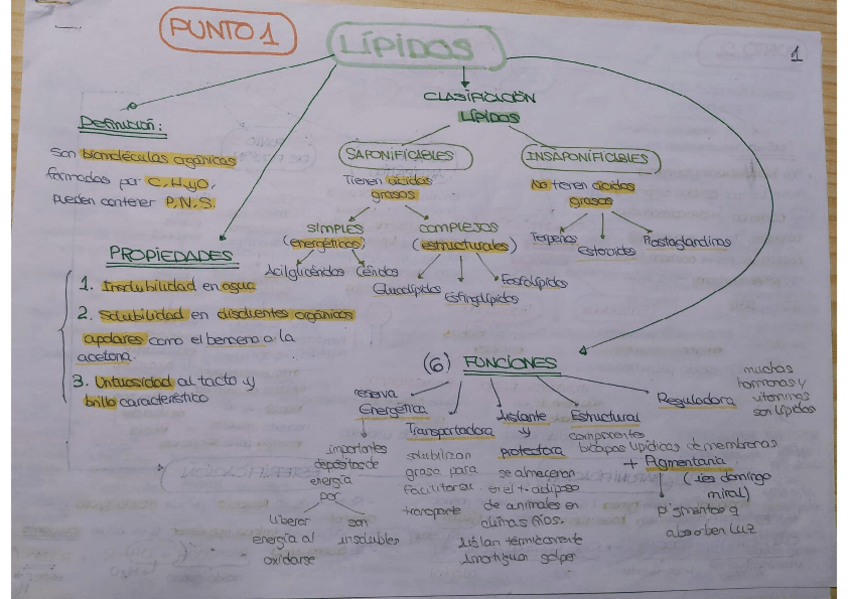 PUNTO 1
LÍPIDOS
1
CLASIFICACIÓN
LÍPIDOS
Definición:
Son biomoléculas orgánicas
formadas por C, H, y O,
pueden contener P, N, S.
SAPONIFICABLES
Tienen ácidos
grasos
SIMPLES
(energéticos)
Acilglicéridos Céridos
COMPLEJOS
(estructurales)
Glucolípidos
Esfingolípidos
Fosfolípidos
INSAPONIFICABLES
No tienen ácidos
grasos
Terpenos
Esteroides
Prostaglandinas
PROPIEDADES
1. Insolubilidad en agua
2. Solubilidad en disolventes orgánicos
apolares como el benceno o la
acetona.
3. Untuosidad al tacto y
brillo característico
(6) FUNCIONES
reserva
Energética
importantes
depósitos de
energía
por
liberar
energía al
oxidarse
son
insolubles
Transportadora
solubilizan
grasa para
facilitar su
transporte
Aislante
y
protectora
se almacenan
en el t. adiposo
de animales en
climas fríos.
Aíslan térmicamente
Amortiguan golpes
Estructural
componentes
bicapas lipídicas de membranas
Reguladora
muchas
hormonas y
vitaminas
son lípidos
+ Pigmentaria
(ies domingo
miral)
pigmentos q
absorben luz